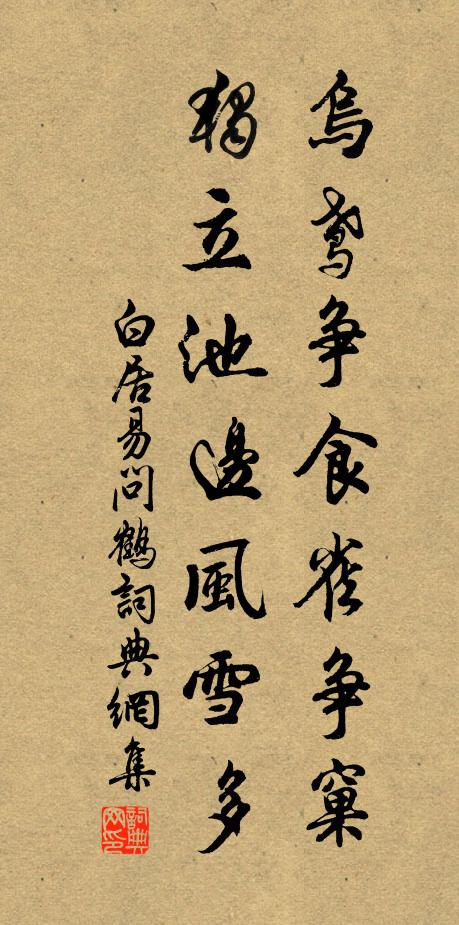 烏鳶争食雀争窠
獨立池邊風雪多
白居易問鶴詞典網集
詞典网印